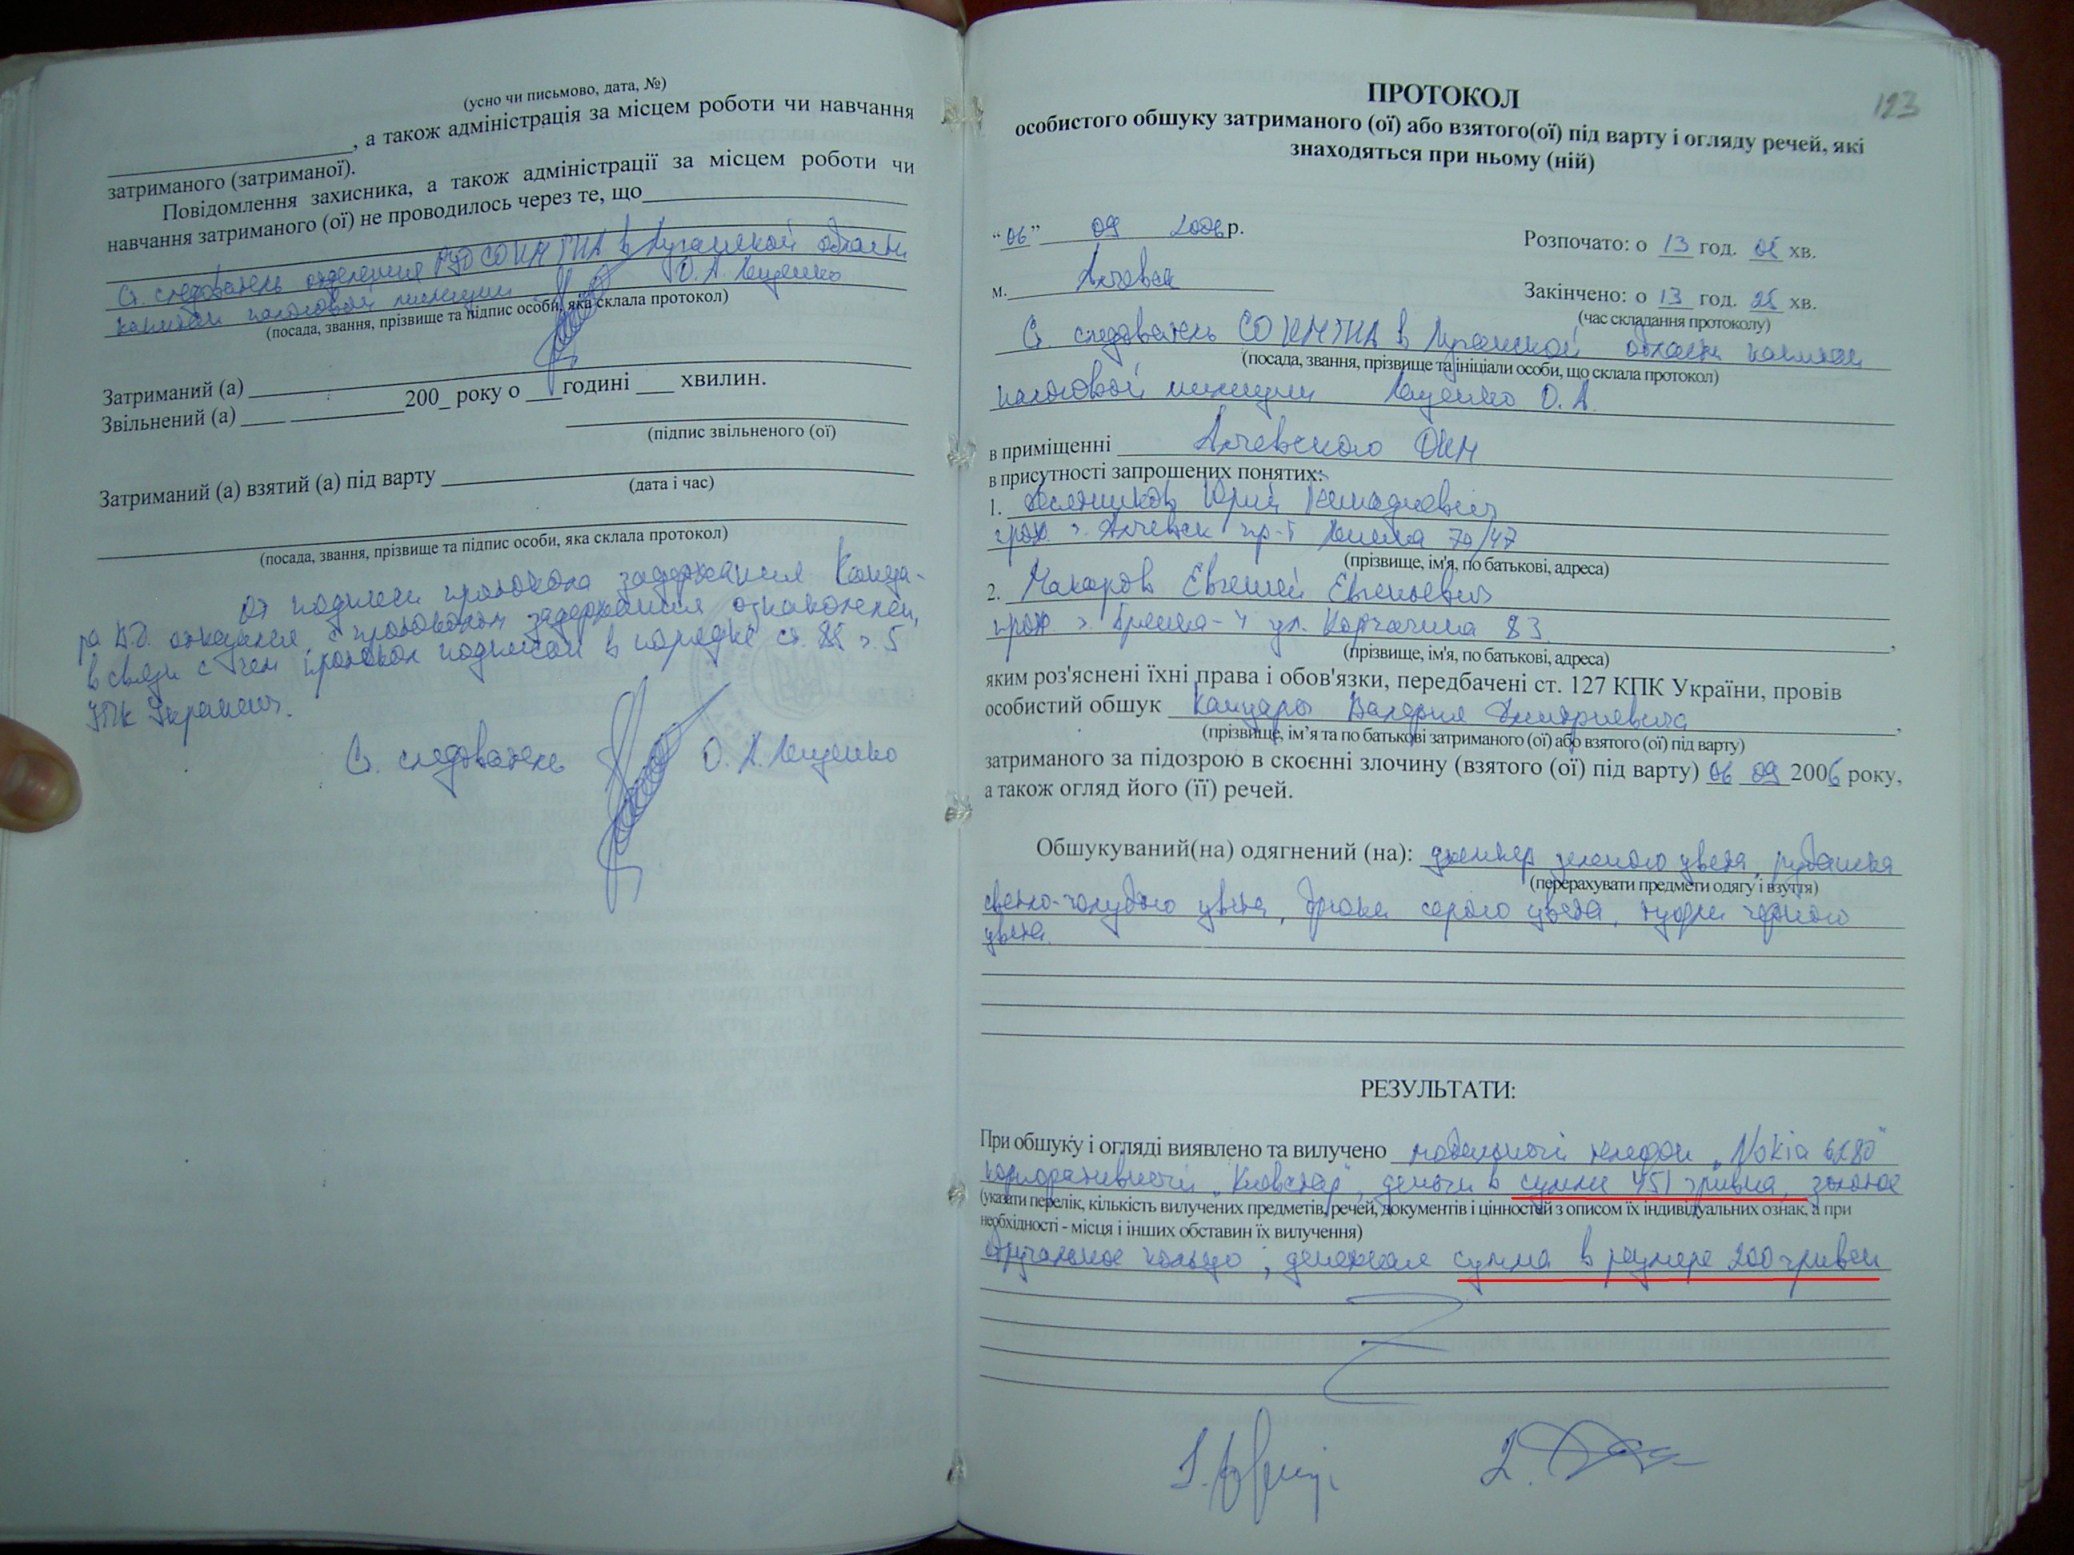 (усно чи письмово, дата, №)
, а також адміністрація за місцем роботи чи навчання
затриманого (затриманої).
Повідомлення захисника, а також адміністрації за місцем роботи чи
навчання затриманого (ої) не проводилось через те, що
Ст. следователь отделения РУД СО КМ ГНА в Луганской области
капитан налоговой милиции О.А. Лященко
(посада, звання, прізвище та підпис особи, яка склала протокол)
Затриманий (а)
Звільнений (а) 200_ року о годині хвилин.
(підпис звільненого (ої)
Затриманий (а) взятий (а) під варту
(дата і час)
(посада, звання, прізвище та підпис особи, яка склала протокол)
От подписи протокола задержания Канца-
ра В.Д. отказался, с протоколом задержания ознакомлен,
в связи с чем протокол подписан в порядке ст. 85 ч. 5
УПК Украины.
Ст. следователь О.А. Лященко
193
ПРОТОКОЛ
особистого обшуку затриманого (ої) або взятого(ої) під варту і огляду речей, які
знаходяться при ньому (ній)
“06” 09 2006р. Розпочато: о 13 год. 05 хв.
м. Алчевск Закінчено: о 13 год. 25 хв.
(час складання протоколу)
Ст. следователь СО КМ ГНА в Луганской области капитан
(посада, звання, прізвище та ініціали особи, що склала протокол)
налоговой милиции Лященко О.А.
в приміщенні Алчевского ОНМ
в присутності запрошених понятих:
1. Юрий Геннадиевич
прож. г. Алчевск пр-т Ленина 70/47
(прізвище, ім'я, по батькові, адреса)
2. Макаров Евгений Евгеньевич
прож. г. ул. Корчагина 83
(прізвище, ім'я, по батькові, адреса)
яким роз'яснені їхні права і обов'язки, передбачені ст. 127 КПК України, провів
особистий обшук Канцары Валерия Дмитриевича
(прізвище, ім’я та по батькові затриманого (ої) або взятого (ої) під варту)
затриманого за підозрою в скоєнні злочину (взятого (ої) під варту) 06 09 2006 року,
а також огляд його (її) речей.
Обшукуваний(на) одягнений (на): джемпер зеленого цвета, рубашка
(перерахувати предмети одягу і взуття)
светло-голубого цвета, брюки серого цвета, туфли черного
цвета.
РЕЗУЛЬТАТИ:
При обшуку і огляді виявлено та вилучено мобильный телефон „Nokia 6280"
корпоративный „Киевстар", деньги в сумме 451 гривна, золотое
(указати перелік, кількість вилучених предметів, речей, документів і цінностей з описом їх індивідуальних ознак, а при
необхідності - місця і інших обставин їх вилучення)
обручальное кольцо, денежная сумма в размере 200 гривен
1.
2.